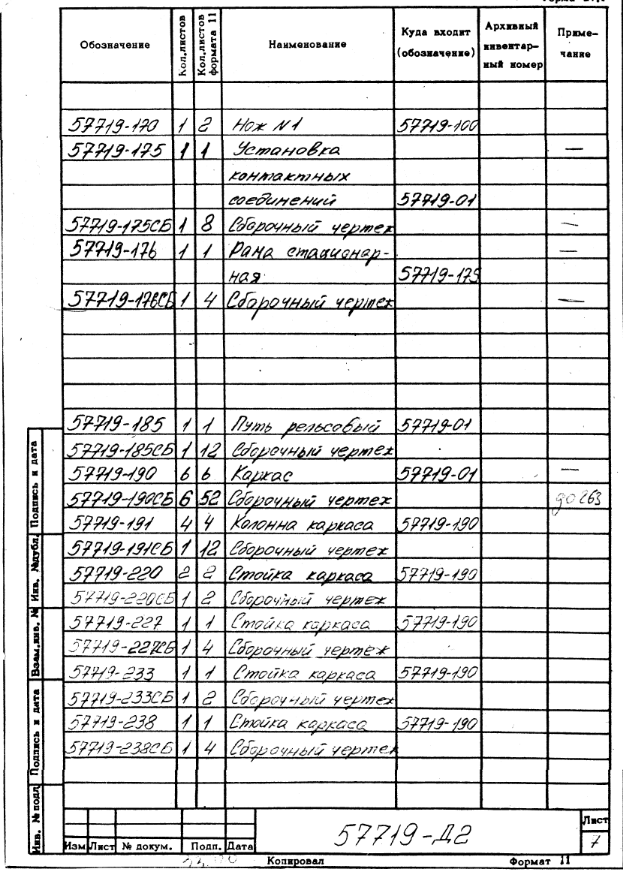 Обозначение Кол.листов Кол.листов формата 11 Наименование Куда входит (обозначение) Архивный инвентарный номер Примечание
57719-170 1 2 Нож N1 57719-100
57719-175 1 1 Установка —
контактных
соединений 57719-01
57719-175СБ 1 8 Сборочный чертеж —
57719-176 1 1 Рама стационар- —
ная 57719-175
57719-176СБ 1 4 Сборочный чертеж —
57719-185 1 1 Путь рельсовый 57719-01
57719-185СБ 1 12 Сборочный чертеж
57719-190 6 6 Каркас 57719-01 —
57719-190СБ 6 52 Сборочный чертеж до 263
57719-191 4 4 Колонна каркаса 57719-190
57719-191СБ 1 12 Сборочный чертеж
57719-220 2 2 Стойка каркаса 57719-190
57719-220СБ 1 2 Сборочный чертеж
57719-227 1 1 Стойка каркаса 57719-190
57719-227СБ 1 4 Сборочный чертеж
57719-233 1 1 Стойка каркаса 57719-190
57719-233СБ 1 2 Сборочный чертеж
57719-238 1 1 Стойка каркаса 57719-190
57719-238СБ 1 4 Сборочный чертеж
Инв. № подл Подпись и дата Взам.инв. № Инв. №дубл. Подпись и дата
57719-Д2
Лист
7
Изм Лист № докум. Подп. Дата
Копировал Формат 11